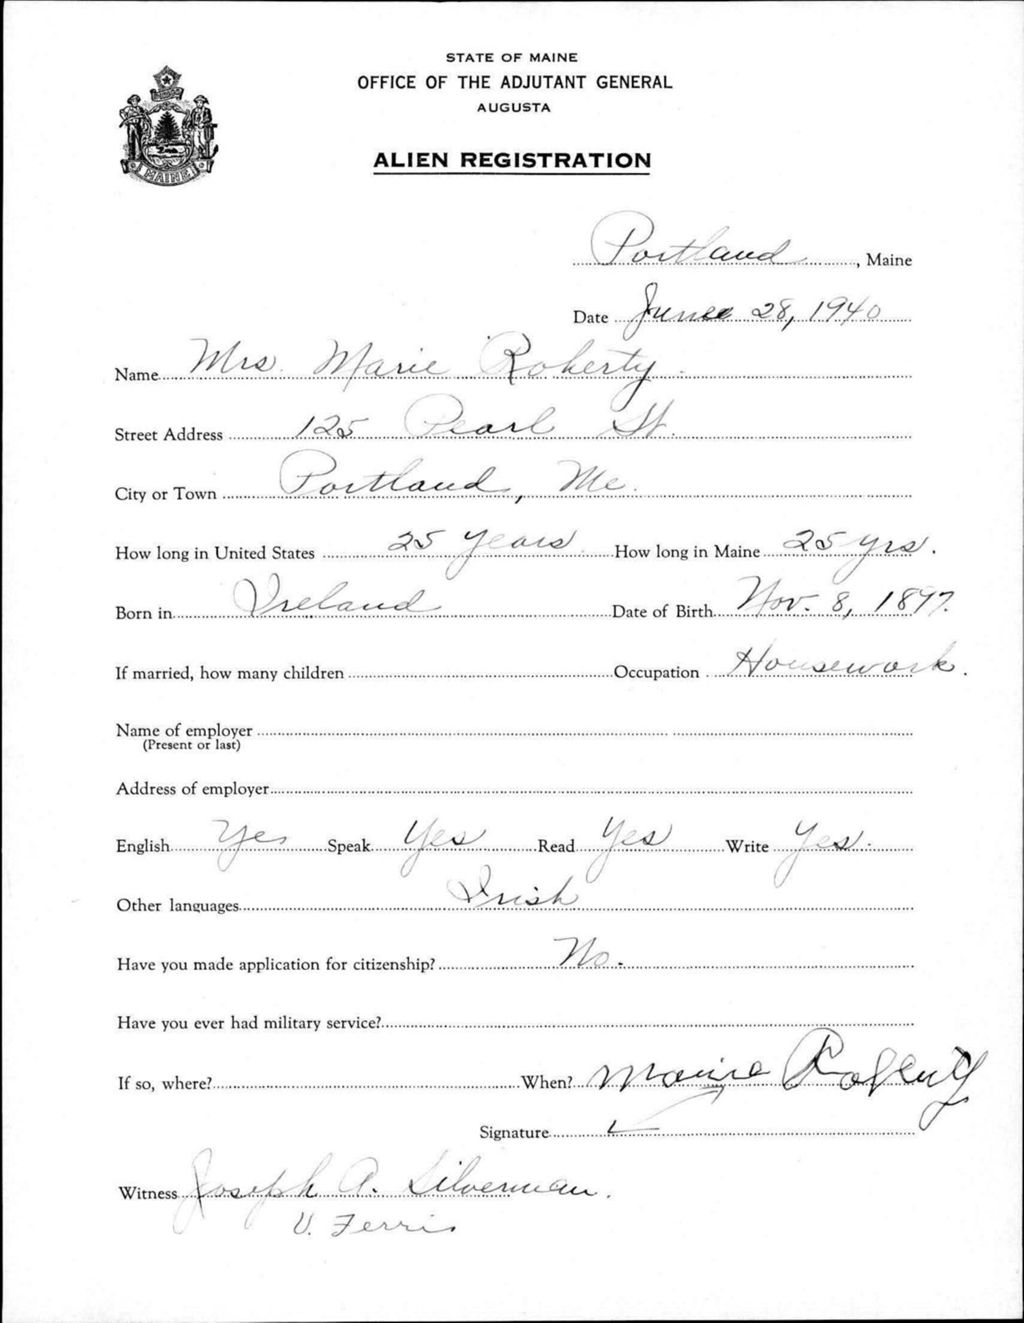 STATE OF MAINE
OFFICE OF THE ADJUTANT GENERAL
AUGUSTA
ALIEN REGISTRATION
MAINE
Portland, Maine
Date June 28, 1940
Name Mrs. Marie Roherty
Street Address 125 Pearl St.
City or Town Portland, Me.
How long in United States 25 years How long in Maine 25 yrs.
Born in Ireland Date of Birth Nov. 8, 1897.
If married, how many children Occupation Housework.
Name of employer
(Present or last)
Address of employer
English Yes Speak Yes Read Yes Write Yes.
Other languages Irish
Have you made application for citizenship? No.
Have you ever had military service?
If so, where? When?
Signature
Witness Joseph A. Silverman.
V. Ferris